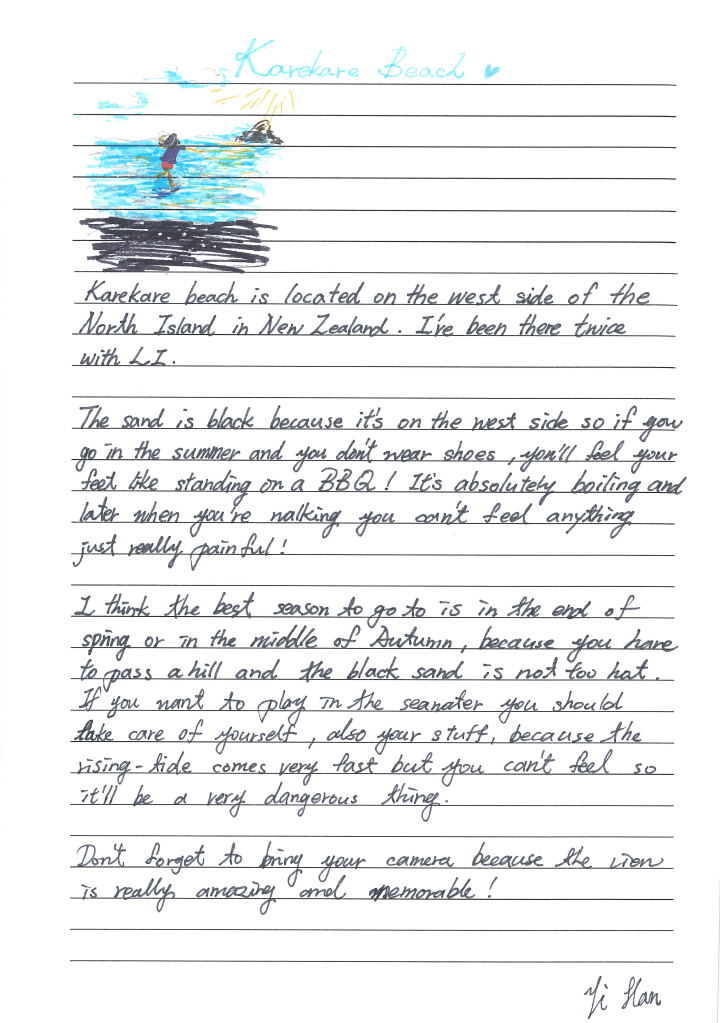 Karekare Beach
Karekare beach is located on the west side of the
North Island in New Zealand. I've been there twice
with LI.
The sand is black because it's on the west side so if you
go in the summer and you don't wear shoes, you'll feel your
feet like standing on a BBQ! It's absolutely boiling and
later when you're walking you can't feel anything
just really painful!
I think the best season to go to is in the end of
spring or in the middle of Autumn, because you have
to pass a hill and the black sand is not too hat.
If you want to play in the seawater you should
take care of yourself, also your stuff, because the
rising-tide comes very fast but you can't feel so
it'll be a very dangerous thing.
Don't forget to bring your camera because the view
is really amazing and memorable!
Yi Han